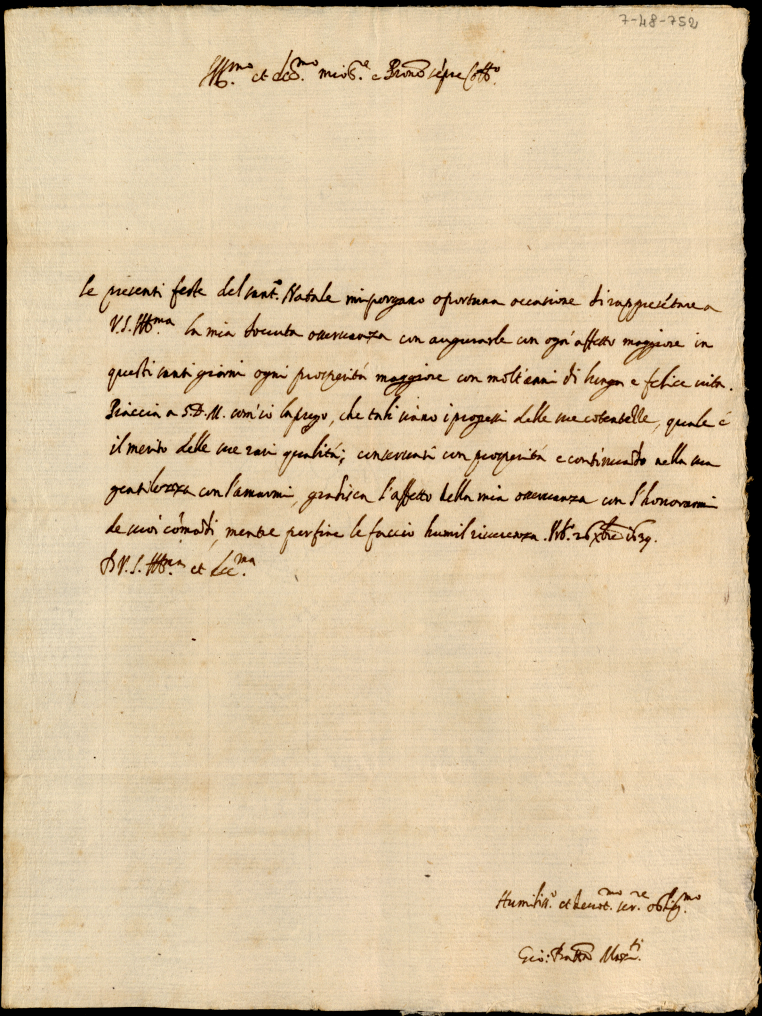 7-48-752
Ill.mo et Ecc.mo mio S.re e Prone sepre Coll.o
Le presenti feste del sant.o Natale mi porgano oportuna occasione di rappresetare a
V.S. Ill.ma la mia dovuta osservanza con augurarle con ogni affetto maggiore in
questi santi giorni ogni prosperità maggiore con molt'anni di lunga e felice vita.
Piaccia a S.D.M. com'io la prego, che tali siano i progressi delle sue cotentezze, quale è
il merito delle sue rare qualità; conservasi con prosperità e continuado nella sua
gentilezza con l'amarmi, gradisca l'affetto della mia osservanza con l'honorarmi
de suoi comadi, mentre per fine le faccio humil riverenza. 26 xbre 1639.
D V.S. Ill.ma et Ecc.ma
Humiliss.o et devot.mo ser.re oblig.mo
Gio: Batta